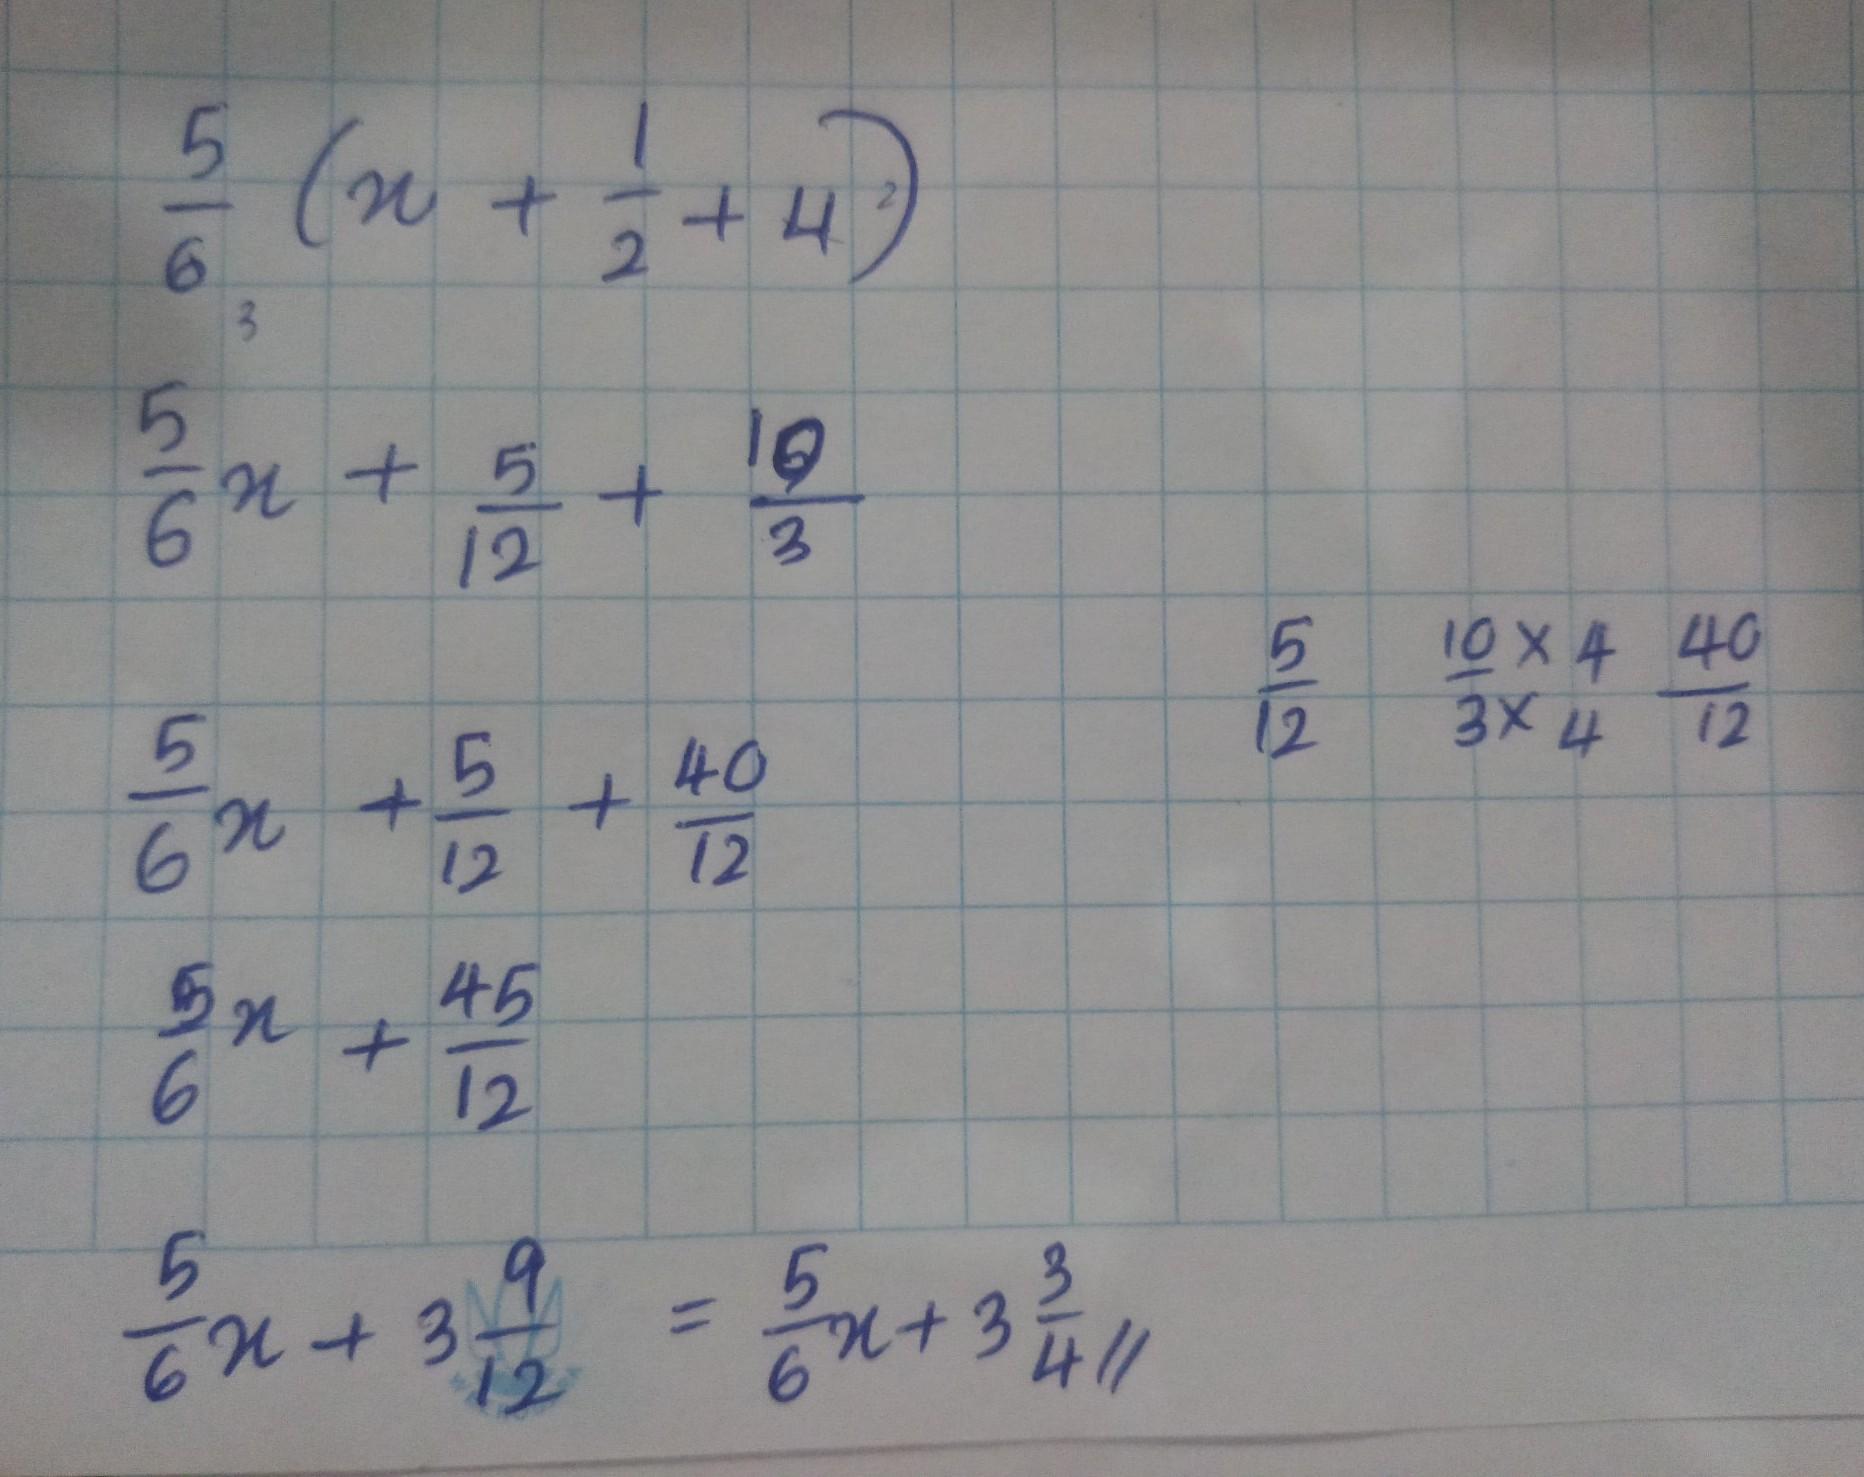 5/6 (x + 1/2 + 4) 2
3
5/6 x + 5/12 + 10/3
5/12 10/3 × 4/× 4 40/12
5/6 x + 5/12 + 40/12
5/6 x + 45/12
5/6 x + 3 9/12 = 5/6 x + 3 3/4 //